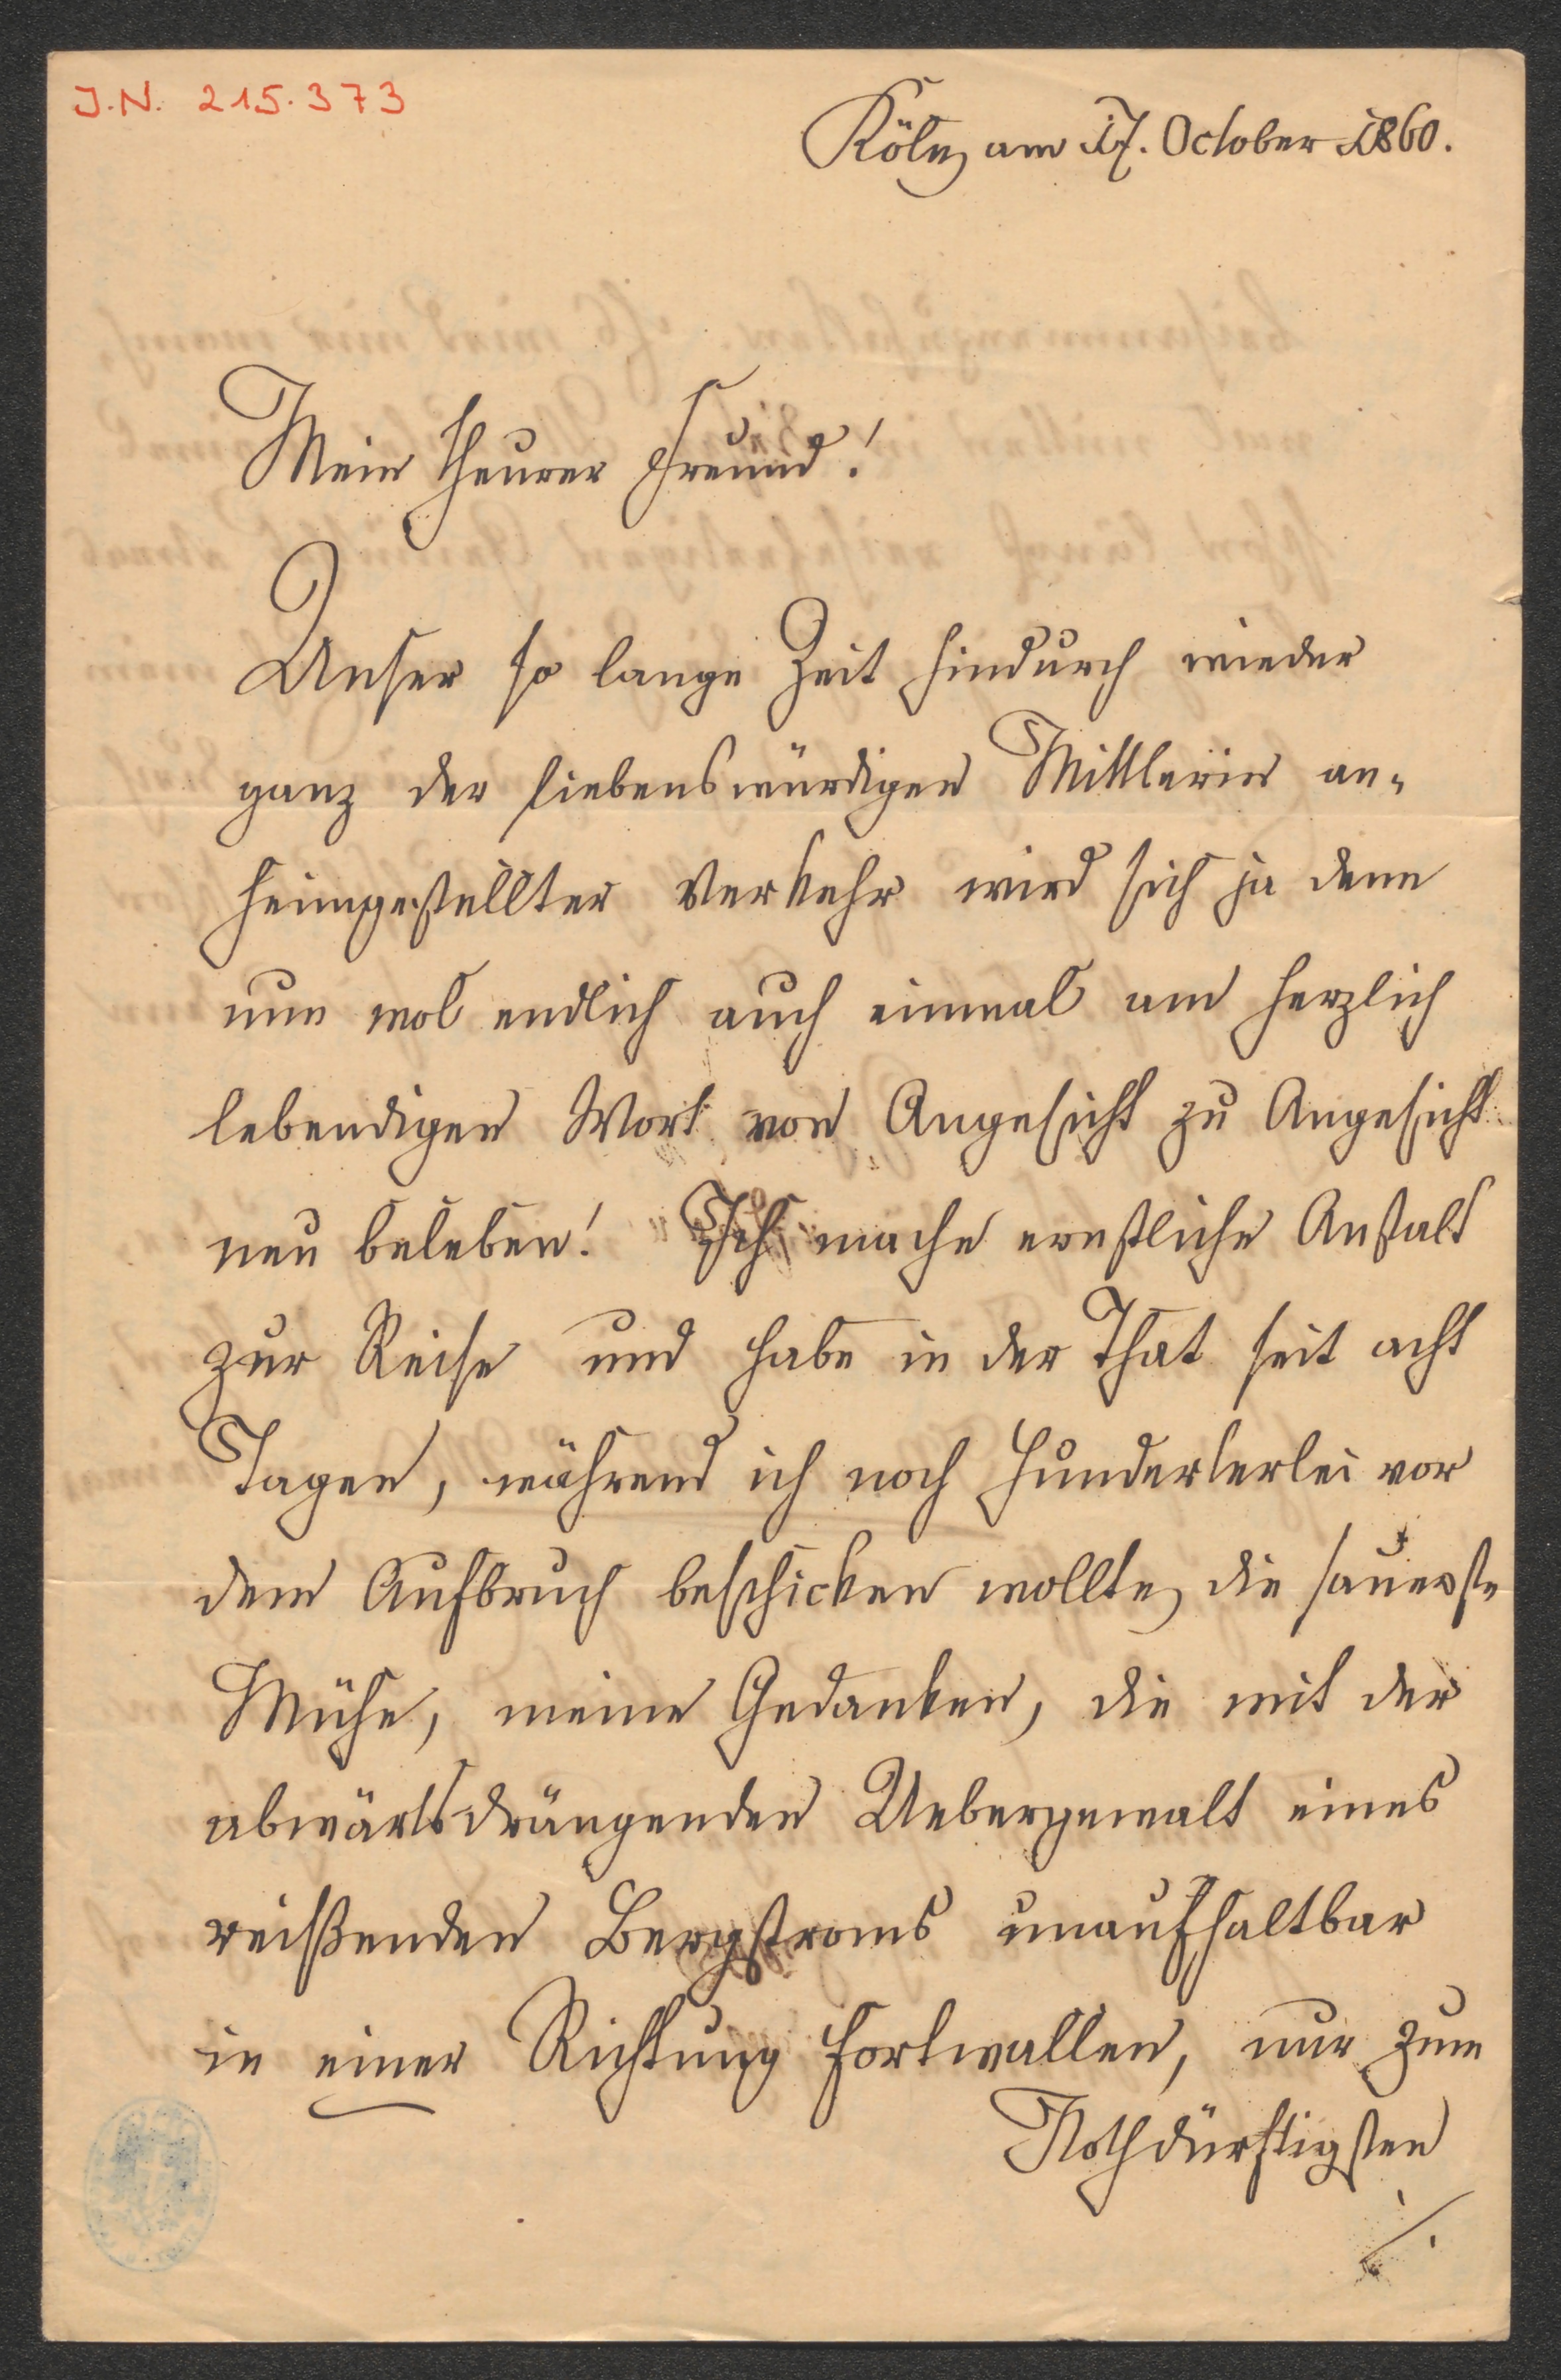 J.N. 215.373
Köln, am 17. October 1860.
Mein theurer Freund!
Unser so lange Zeit hindurch wieder
ganz der liebenswürdigen Mittlerin an-
heimgestellter Verkehr wird sich ja denn
nun wol endlich auch einmal am herzlich
lebendigen Wort von Angesicht zu Angesicht
neu beleben! Ich mache ernstliche Anstalt
zur Reise und habe in der That seit acht
Tagen, während ich noch Hunderterlei vor
dem Aufbruch beschicken wollte, die sauerste
Mühe, meine Gedanken, die mit der
abwärtsdrängenden Uebergewalt eines
reißenden Bergstroms unaufhaltbar
in einer Richtung fortwallen, nur zum
Nothdürftigsten
./.